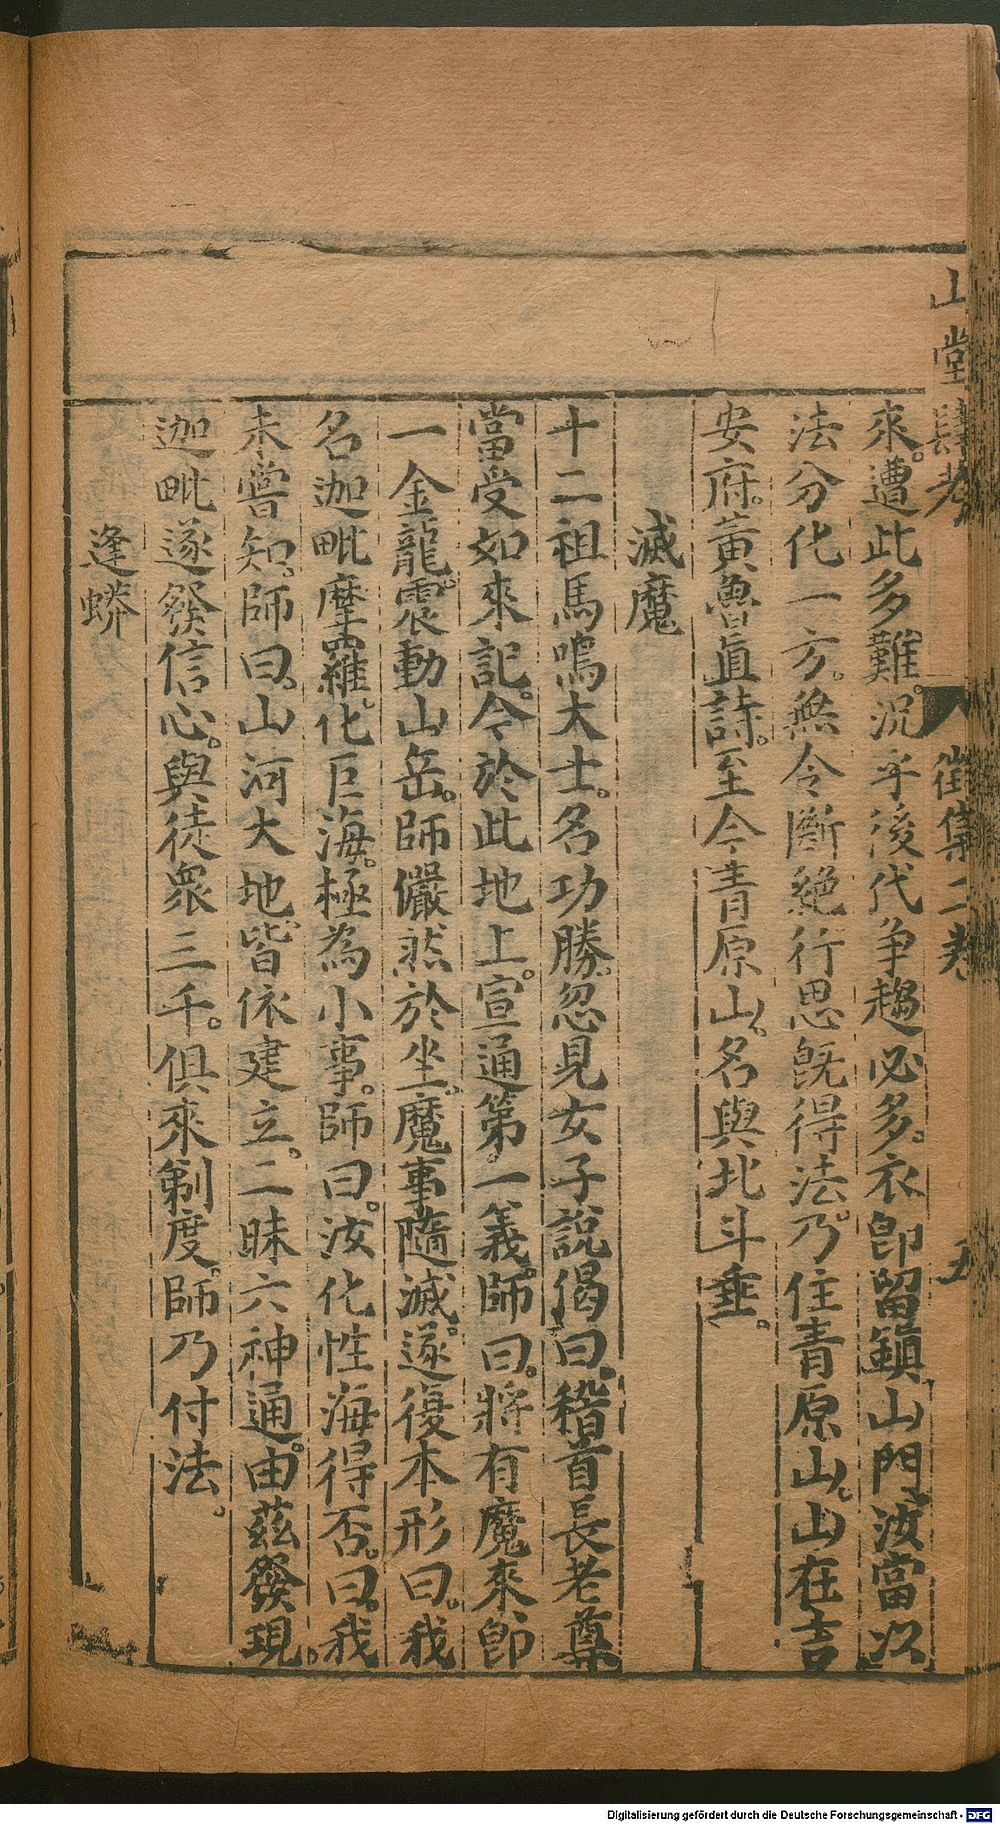 山堂肆考 徵集二卷 五
來。遭此多難。況乎後代爭趨必多。衣卽留鎮山門汝當以
法分化一方。無令斷絕行思旣得法。乃住青原山。山在吉
安府。黃魯直詩。至今青原山。名與北斗垂。
滅魔
十二祖馬鳴大士。名功勝。忽見女子說偈曰。稽首長老尊
當受如來記。今於此地上。宣通第一義。師曰。將有魔來卽
一金龍。震動山岳。師儼然於坐。魔事隨滅。遂復本形曰。我
名迦毗摩羅。化巨海。極為小事。師曰。汝化性海得否。曰。我
未嘗知。師曰。山河大地。皆依建立。三昧六神通。由茲發現。
迦毗遂發信心。與徒衆三千。俱來剃度。師乃付法。
逢蟒
Digitalisierung gefördert durch die Deutsche Forschungsgemeinschaft - DFG